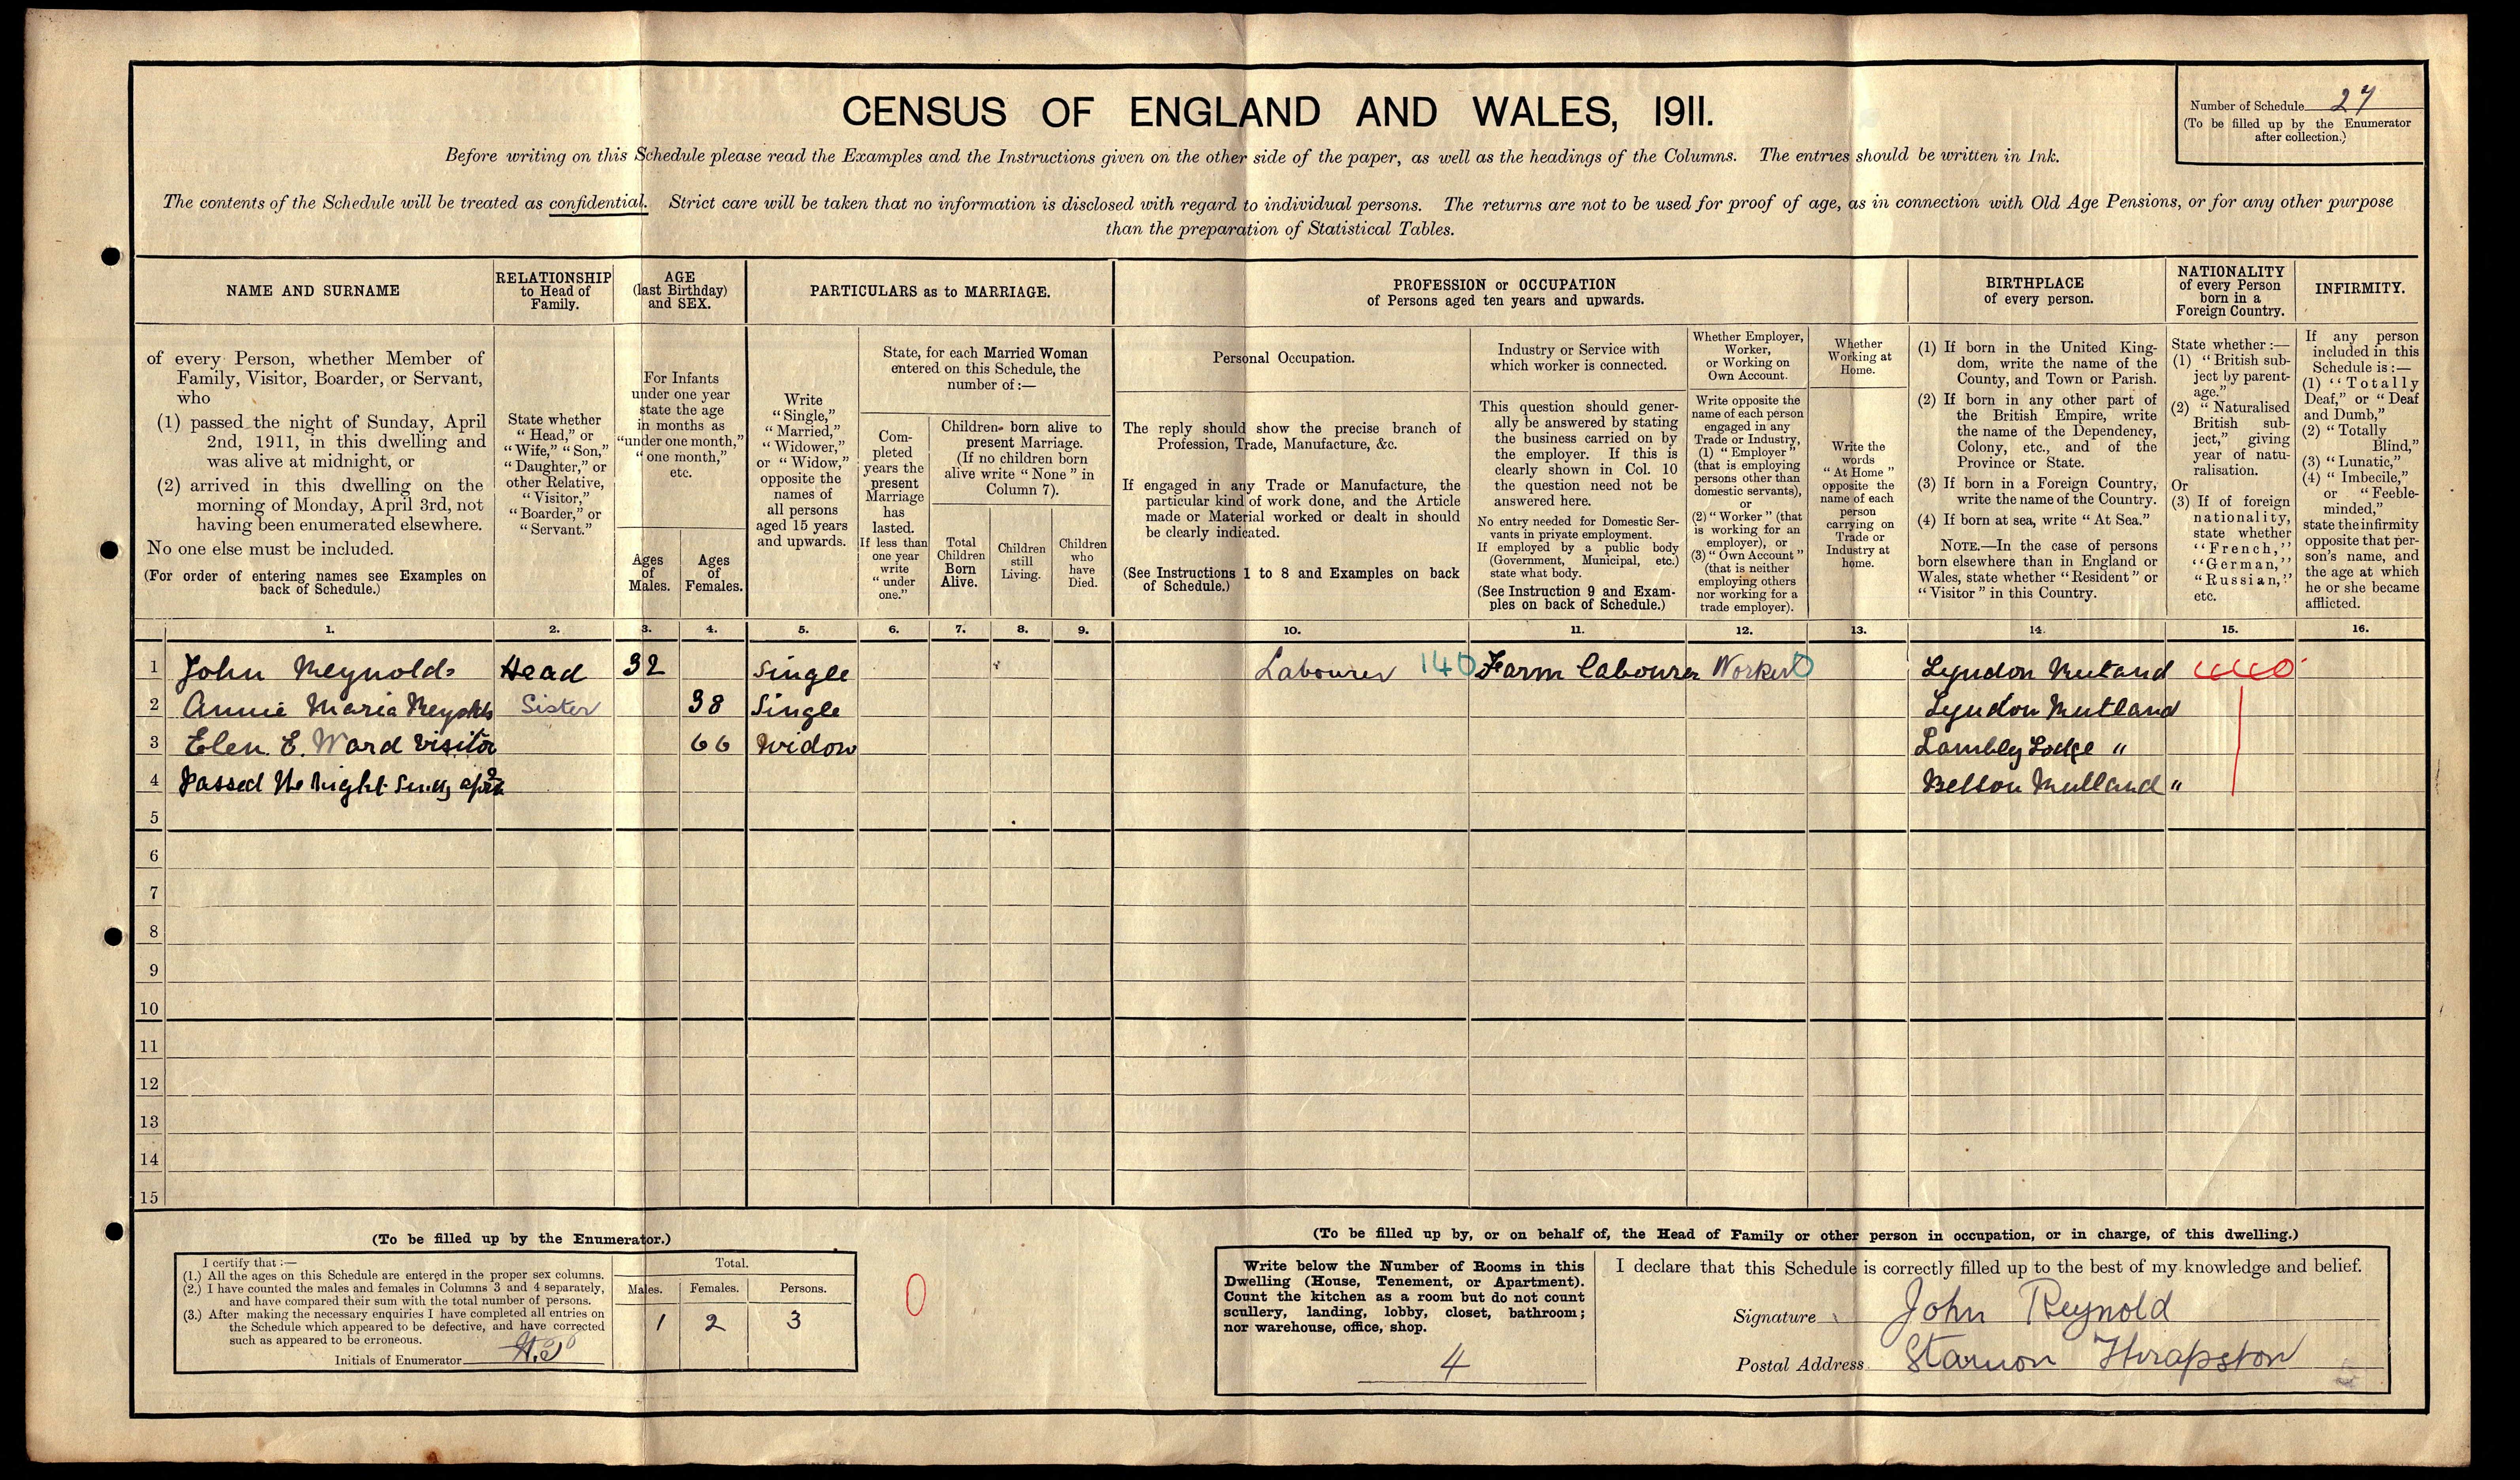 CENSUS OF ENGLAND AND WALES, 1911.
Number of Schedule 27
(To be filled up by the Enumerator
after collection.)
Before writing on this Schedule please read the Examples and the Instructions given on the other side of the paper, as well as the headings of the Columns. The entries should be written in Ink.
The contents of the Schedule will be treated as confidential. Strict care will be taken that no information is disclosed with regard to individual persons. The returns are not to be used for proof of age, as in connection with Old Age Pensions, or for any other purpose
than the preparation of Statistical Tables.
NAME AND SURNAME
RELATIONSHIP
to Head of
Family.
AGE
(last Birthday)
and SEX.
PARTICULARS as to MARRIAGE.
PROFESSION or OCCUPATION
of Persons aged ten years and upwards.
BIRTHPLACE
of every person.
NATIONALITY
of every Person
born in a
Foreign Country.
INFIRMITY.
of every Person, whether Member of
Family, Visitor, Boarder, or Servant,
who
(1) passed the night of Sunday, April
2nd, 1911, in this dwelling and
was alive at midnight, or
(2) arrived in this dwelling on the
morning of Monday, April 3rd, not
having been enumerated elsewhere.
No one else must be included.
(For order of entering names see Examples on
back of Schedule.)
State whether
"Head," or
"Wife," "Son,"
"Daughter," or
other Relative,
"Visitor,"
"Boarder," or
"Servant."
For Infants
under one year
state the age
in months as
"under one month,"
"one month,"
etc.
Ages
of
Males.
Ages
of
Females.
Write
"Single,"
"Married,"
"Widower,"
or "Widow,"
opposite the
names of
all persons
aged 15 years
and upwards.
State, for each Married Woman
entered on this Schedule, the
number of:—
Com-
pleted
years the
present
Marriage
has
lasted.
If less than
one year
write
"under
one."
Children born alive to
present Marriage.
(If no children born
alive write "None" in
Column 7).
Total
Children
Born
Alive.
Children
still
Living.
Children
who
have
Died.
Personal Occupation.
The reply should show the precise branch of
Profession, Trade, Manufacture, &c.
If engaged in any Trade or Manufacture, the
particular kind of work done, and the Article
made or Material worked or dealt in should
be clearly indicated.
(See Instructions 1 to 8 and Examples on back
of Schedule.)
Industry or Service with
which worker is connected.
This question should gener-
ally be answered by stating
the business carried on by
the employer. If this is
clearly shown in Col. 10
the question need not be
answered here.
No entry needed for Domestic Ser-
vants in private employment.
If employed by a public body
(Government, Municipal, etc.)
state what body.
(See Instruction 9 and Exam-
ples on back of Schedule.)
Whether Employer,
Worker,
or Working on
Own Account.
Write opposite the
name of each person
engaged in any
Trade or Industry,
(1) "Employer"
(that is employing
persons other than
domestic servants),
or
(2) "Worker" (that
is working for an
employer), or
(3) "Own Account"
(that is neither
employing others
nor working for a
trade employer).
Whether
Working at
Home.
Write the
words
"At Home"
opposite the
name of each
person
carrying on
Trade or
Industry at
home.
(1) If born in the United King-
dom, write the name of the
County, and Town or Parish.
(2) If born in any other part of
the British Empire, write
the name of the Dependency,
Colony, etc., and of the
Province or State.
(3) If born in a Foreign Country,
write the name of the Country.
(4) If born at sea, write "At Sea."
NOTE.—In the case of persons
born elsewhere than in England or
Wales, state whether "Resident" or
"Visitor" in this Country.
State whether:—
(1) "British sub-
ject by parent-
age."
(2) "Naturalised
British sub-
ject," giving
year of natu-
ralisation.
Or
(3) If of foreign
nationality,
state whether
"French,"
"German,"
"Russian,"
etc.
If any person
included in this
Schedule is:—
(1) "Totally
Deaf," or "Deaf
and Dumb,"
(2) "Totally
Blind,"
(3) "Lunatic,"
(4) "Imbecile,"
or "Feeble-
minded,"
state the infirmity
opposite that per-
son's name, and
the age at which
he or she became
afflicted.
1. 2. 3. 4. 5. 6. 7. 8. 9. 10. 11. 12. 13. 14. 15. 16.
1 John Reynolds Head 32 Single Labourer 140 Farm Labourer Worker 0 Lyndon Rutland 440
2 Annie Maria Reynolds Sister 38 Single Lyndon Rutland
3 Elen. E. Ward Visitor 66 Widow Lambley Lodge "
4 Passed the Night Sundy april 2 Belton Rutland "
5
6
7
8
9
10
11
12
13
14
15
(To be filled up by the Enumerator.)
I certify that:—
(1.) All the ages on this Schedule are entered in the proper sex columns.
(2.) I have counted the males and females in Columns 3 and 4 separately,
and have compared their sum with the total number of persons.
(3.) After making the necessary enquiries I have completed all entries on
the Schedule which appeared to be defective, and have corrected
such as appeared to be erroneous.
Initials of Enumerator
Total.
Males. Females. Persons.
1 2 3
0
(To be filled up by, or on behalf of, the Head of Family or other person in occupation, or in charge, of this dwelling.)
Write below the Number of Rooms in this
Dwelling (House, Tenement, or Apartment).
Count the kitchen as a room but do not count
scullery, landing, lobby, closet, bathroom;
nor warehouse, office, shop.
4
I declare that this Schedule is correctly filled up to the best of my knowledge and belief.
Signature John Reynold
Postal Address Stanion Thrapston